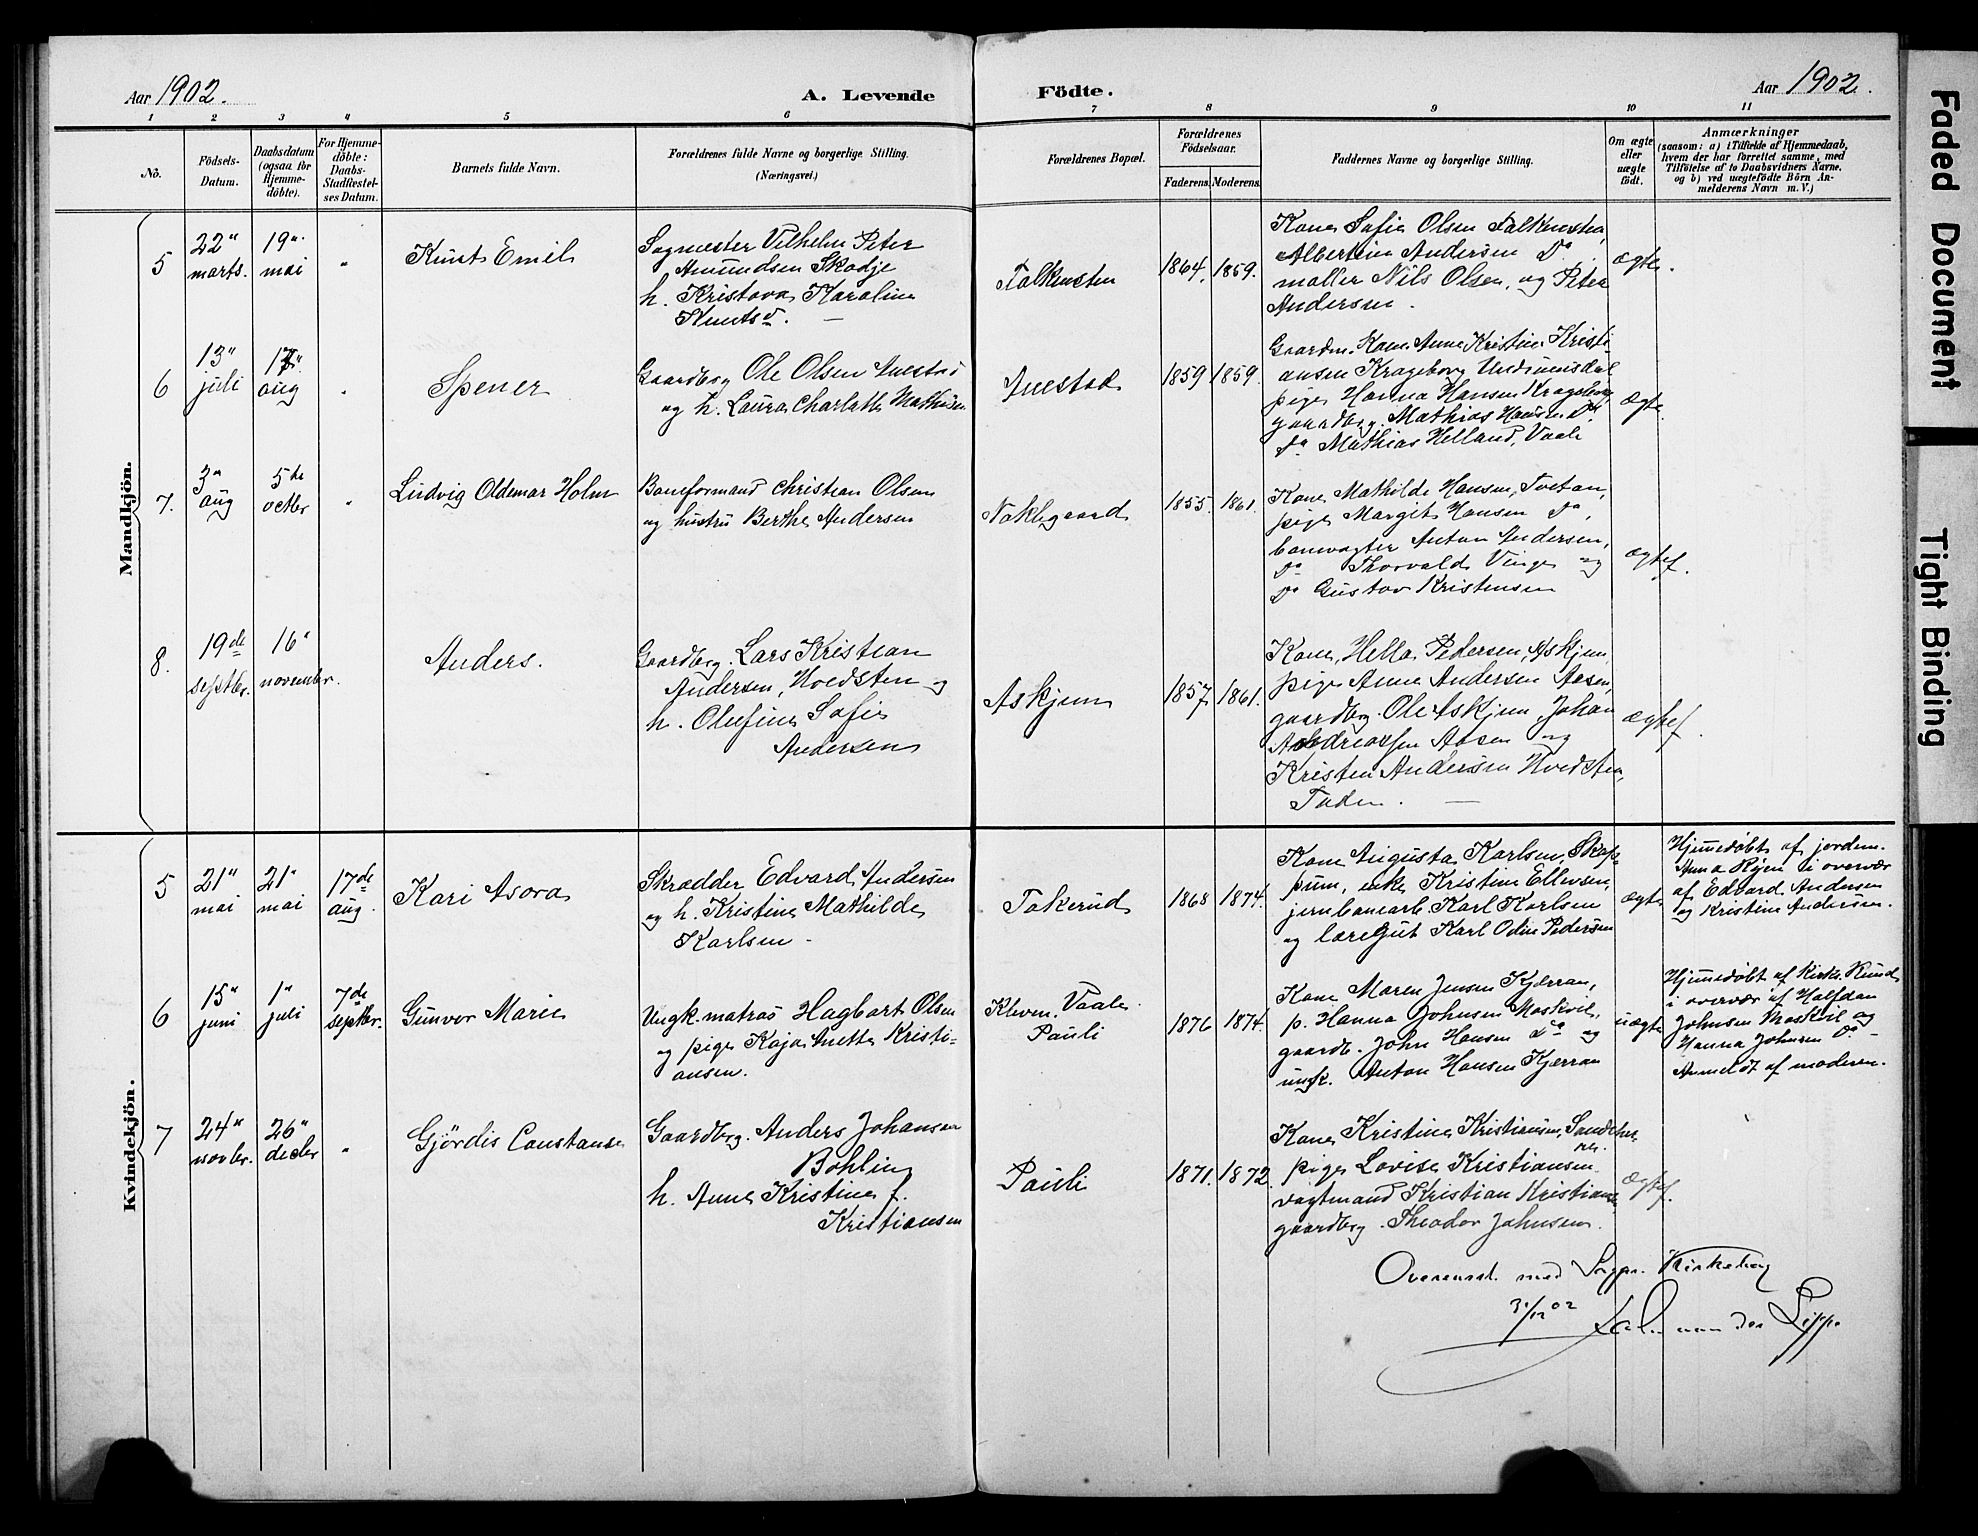 Aar 1902.
A. Levende Födte.
Aar 1902.
1 2 3 4 5 6 7 8 9 10 11
No.
Födsels-
Datum.
Daabsdatum
(ogsaa for
Hjemme-
döbte).
For Hjemme-
döbte:
Daabs-
Stadfæstel-
ses Datum.
Barnets fulde Navn.
Forældrenes fulde Navne og borgerlige Stilling.
(Næringsvei.)
Forældrenes Bopæl.
Forældrenes
Födselsaar.
Faderens. Moderens.
Faddernes Navne og borgerlige Stilling.
Om ægte
eller
uægte
födt.
Anmærkninger
(saasom: a) i Tilfælde af Hjemmedaab,
hvem der har forrettet samme, med
Tilföielse af to Daabsvidners Navne,
og b) ved uægtefödte Börn An-
melderens Navn m. V.)
Mandkjön.
5
22"
marts.
19"
mai
"
Knut Emil
Sagmester Vilhelm Peter
Amundsen Skodje
h. Kristova Karoline
Knutsd. —
Falkensten
1864. 1859.
Kone Sofie Olsen Falkensten,
Albertine Andersen Do.
møller Nils Olsen, og Peter
Andersen.
ægte.
6
13"
juli
17"
aug
"
Spener
Gaardbrg Ole Olsen Anestad
og h. Laura Charlotte Mathisen
Anestad
1859 1859.
Gaardm. Kone Anne Kristine Kristi
ansen Krageborg
pige Hanna Hansen
gaardbrg. Mathias Hansen Do
Do Mathias Helland, Vaale
ægte.
7.
3"
aug
5te
octbr
"
Ludvig Oldemar Holm
Baneformand Christian Olsen
og hustru Berthe Andersen
Naklegaard
1855. 1861.
Kone Mathilde Hansen, Tvetan,
pige Margit Hansen Do,
banevogter Anton Andersen,
Do Thorvald Vinge og
Do Gustav Kristensen
ægtef.
8.
19de
septbr.
16"
novembr.
Anders.
Gaardbrg. Lars Kristian
Andersen, Hvedsten og
h. Olufine Sofie
Andersen
Askjem
1857 1861.
Kone, Hella Pedersen, Askjem,
pige Anne Andersen Aasen,
gaardbrg Ole Askjem, Johan
Andreassen Aasen og
Kristen Andersen Hvedsten,
Faderen. —
ægtef.
Kvindekjön.
5
21"
mai
21"
mai
17de
aug.
Kari Asora
Skrædder Edvard Andersen
og h. Kristine Mathilde
Karlsen -
Takerud
1868 1874.
Kone Augusta Karlsen, Skop-
pum, enke Kristine Ellevsen,
jernbanearb. Karl Karlsen
og læregut Karl Odin Pedersen
ægte
Hjemmedøbt af jordem.
Anna Ryen i overvær
af Edvard Andersen
og Kristine Andersen.
6
15"
juni
1"
juli
7de
septbr.
Gunvor Marie
Ungk. matros Hagbart Olsen
og pige Kaja Anette Kristi-
ansen.
Kleven, Vaale.
Pauli
1876 1874.
Kone Maren Jensen Kjærran,
p. Hanna Johnsen Moskvil,
gaardb. John Hansen Do og
ungk. Anton Hansen Kjærran
uægte
Hjemmedøbt af Kirks.
i overvær af Halfdan
Johnsen Moskvil og
Hanna Johnsen Do -
Anmeldt af moderen.
7
24"
novbr.
26"
decbr
"
Gjördis Constanse
Gaardbrg. Anders Johansen
Bøhling
h. Anne Kristine f.
Kristiansen
Pauli
1871. 1872.
Kone Kristine Kristiansen,
pige Lovise Kristiansen
vagtmand Kristian Kristians
gaardbrg. Theodor Johnsen.
ægtef.
Overensst. med Sogpr. Kirkebog
31/12 02
von der Lippe
Faded Document
Tight Binding